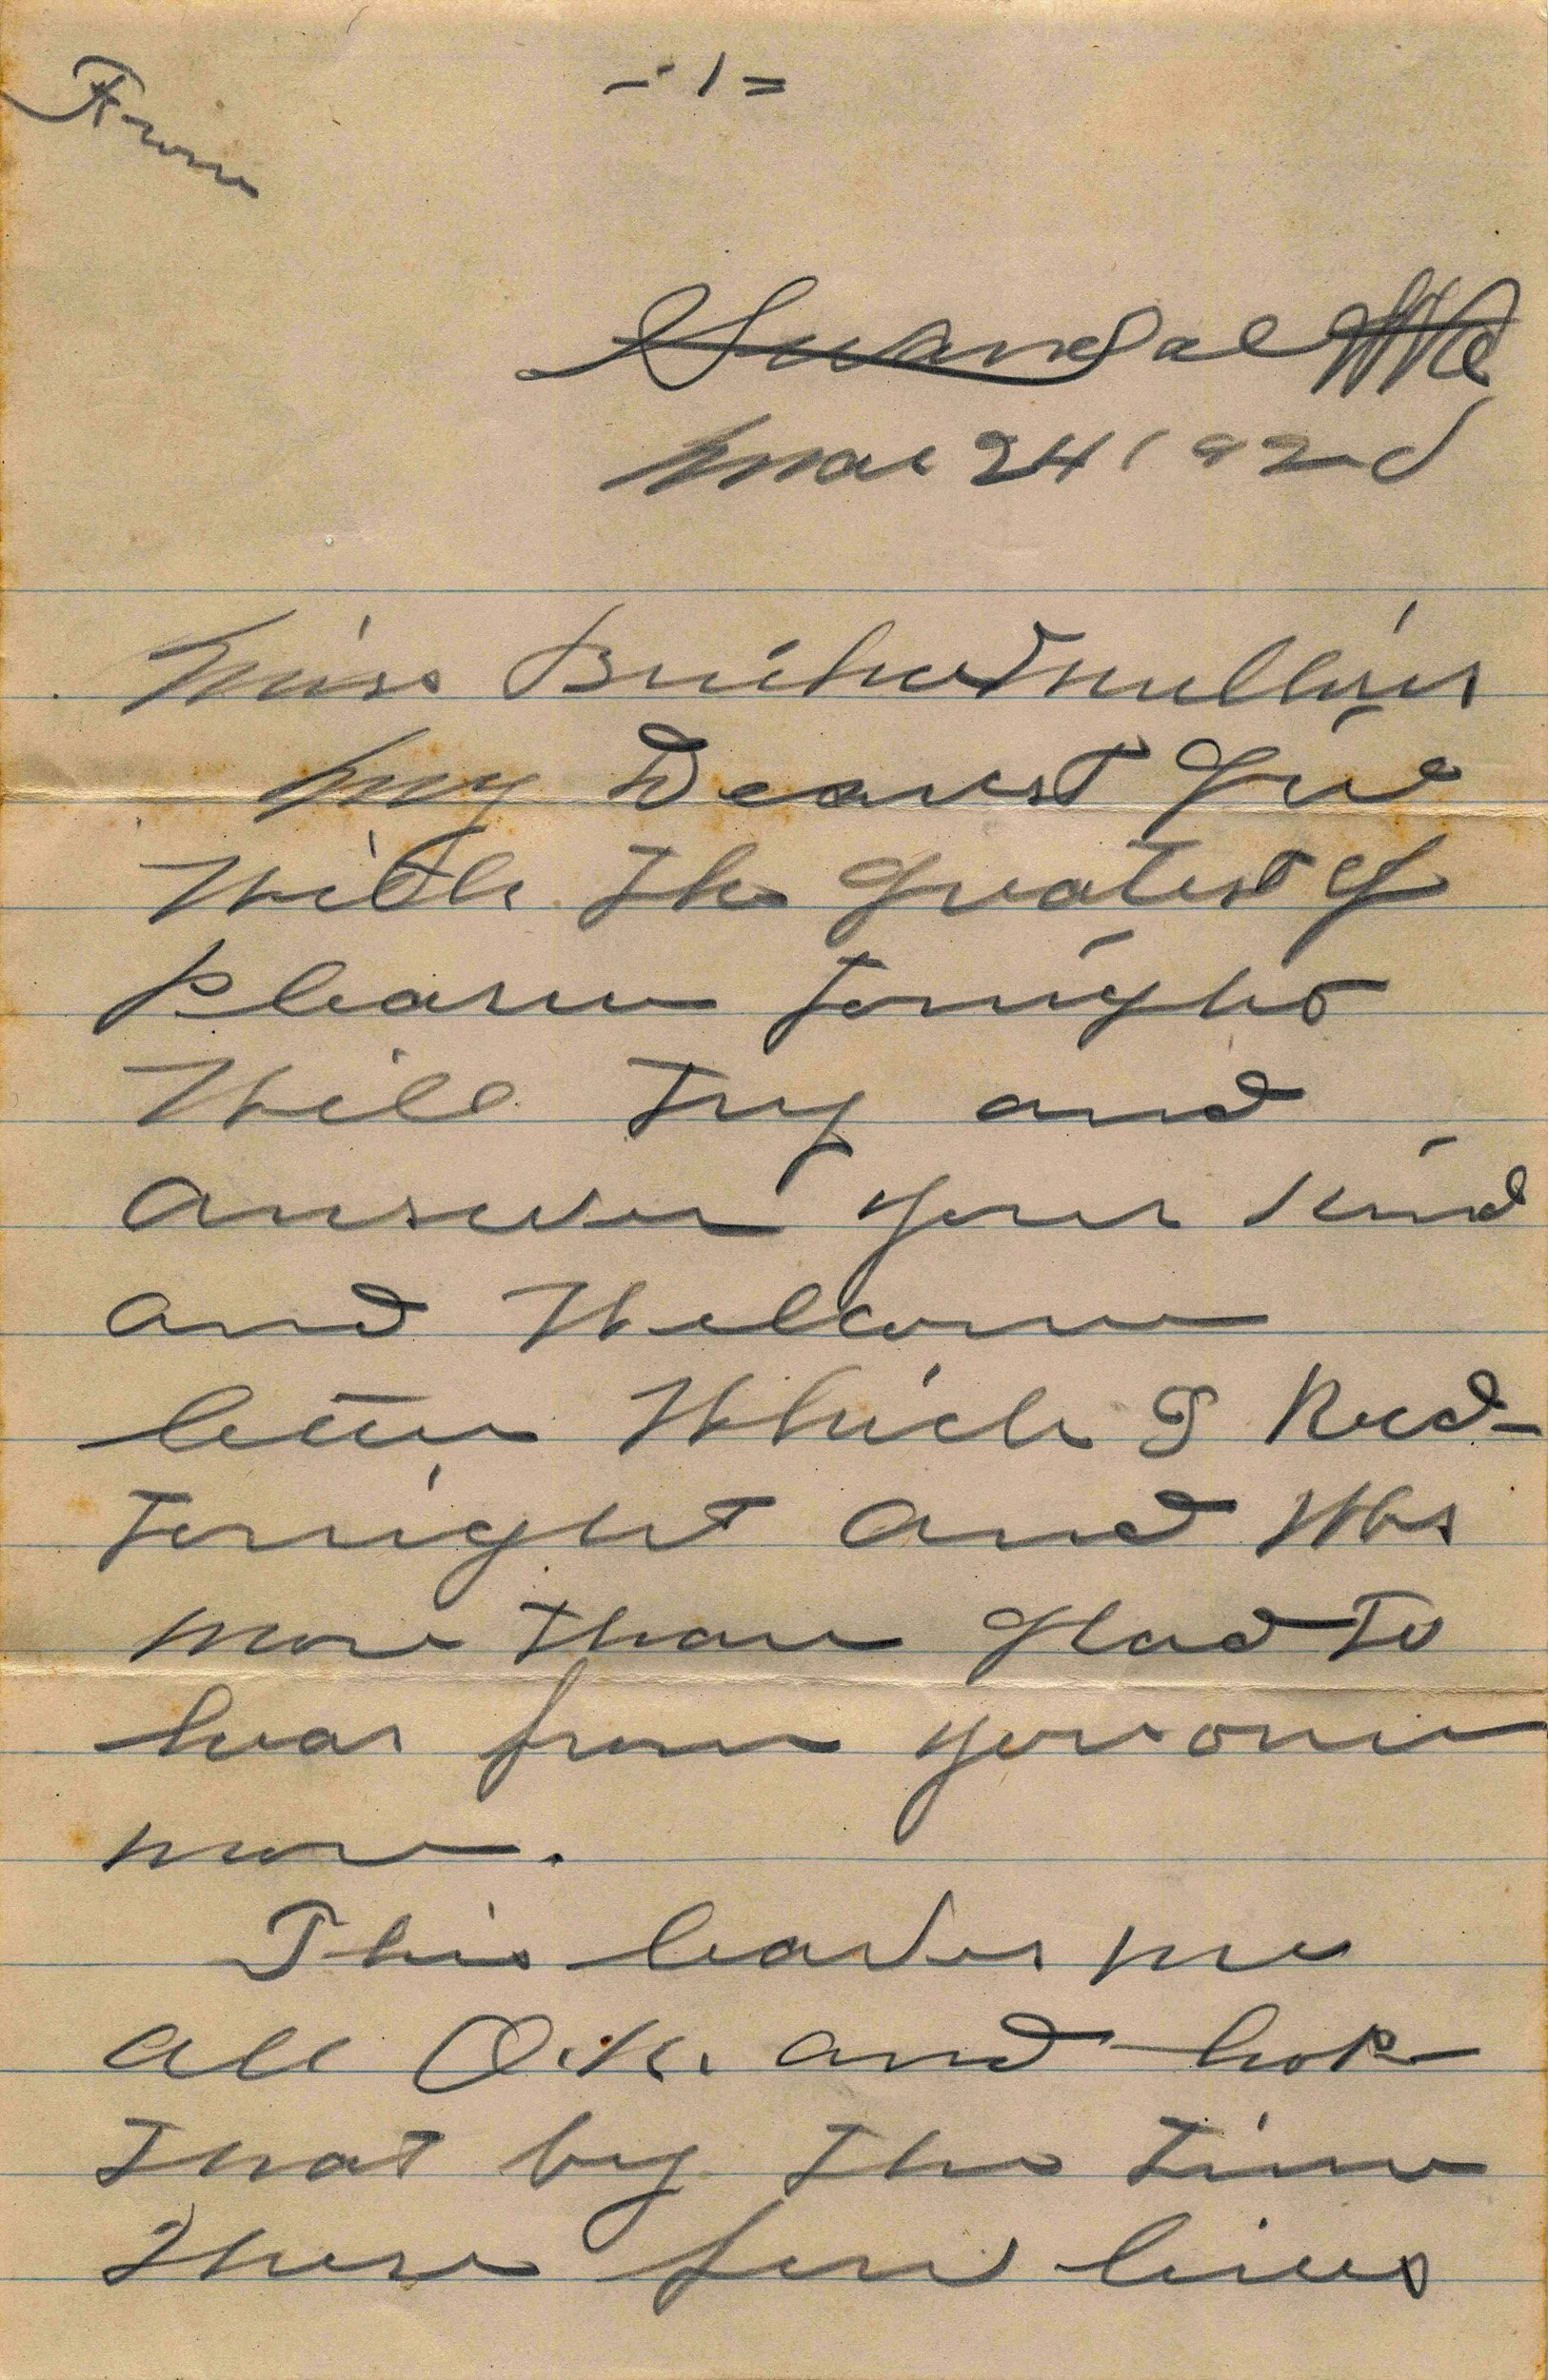 From
- 1 =
Swandale W Va
Mar 24 192
Miss Mullins
My Dearest
With the greatest of
Pleasure Tonight
Will Try and
answer your kind
and Welcome
letter Which I Recd-
Tonight and Was
more Than Glad To
hear from you once
more.
This leaves me
all O.K. and hope
That by The Time
These few lines